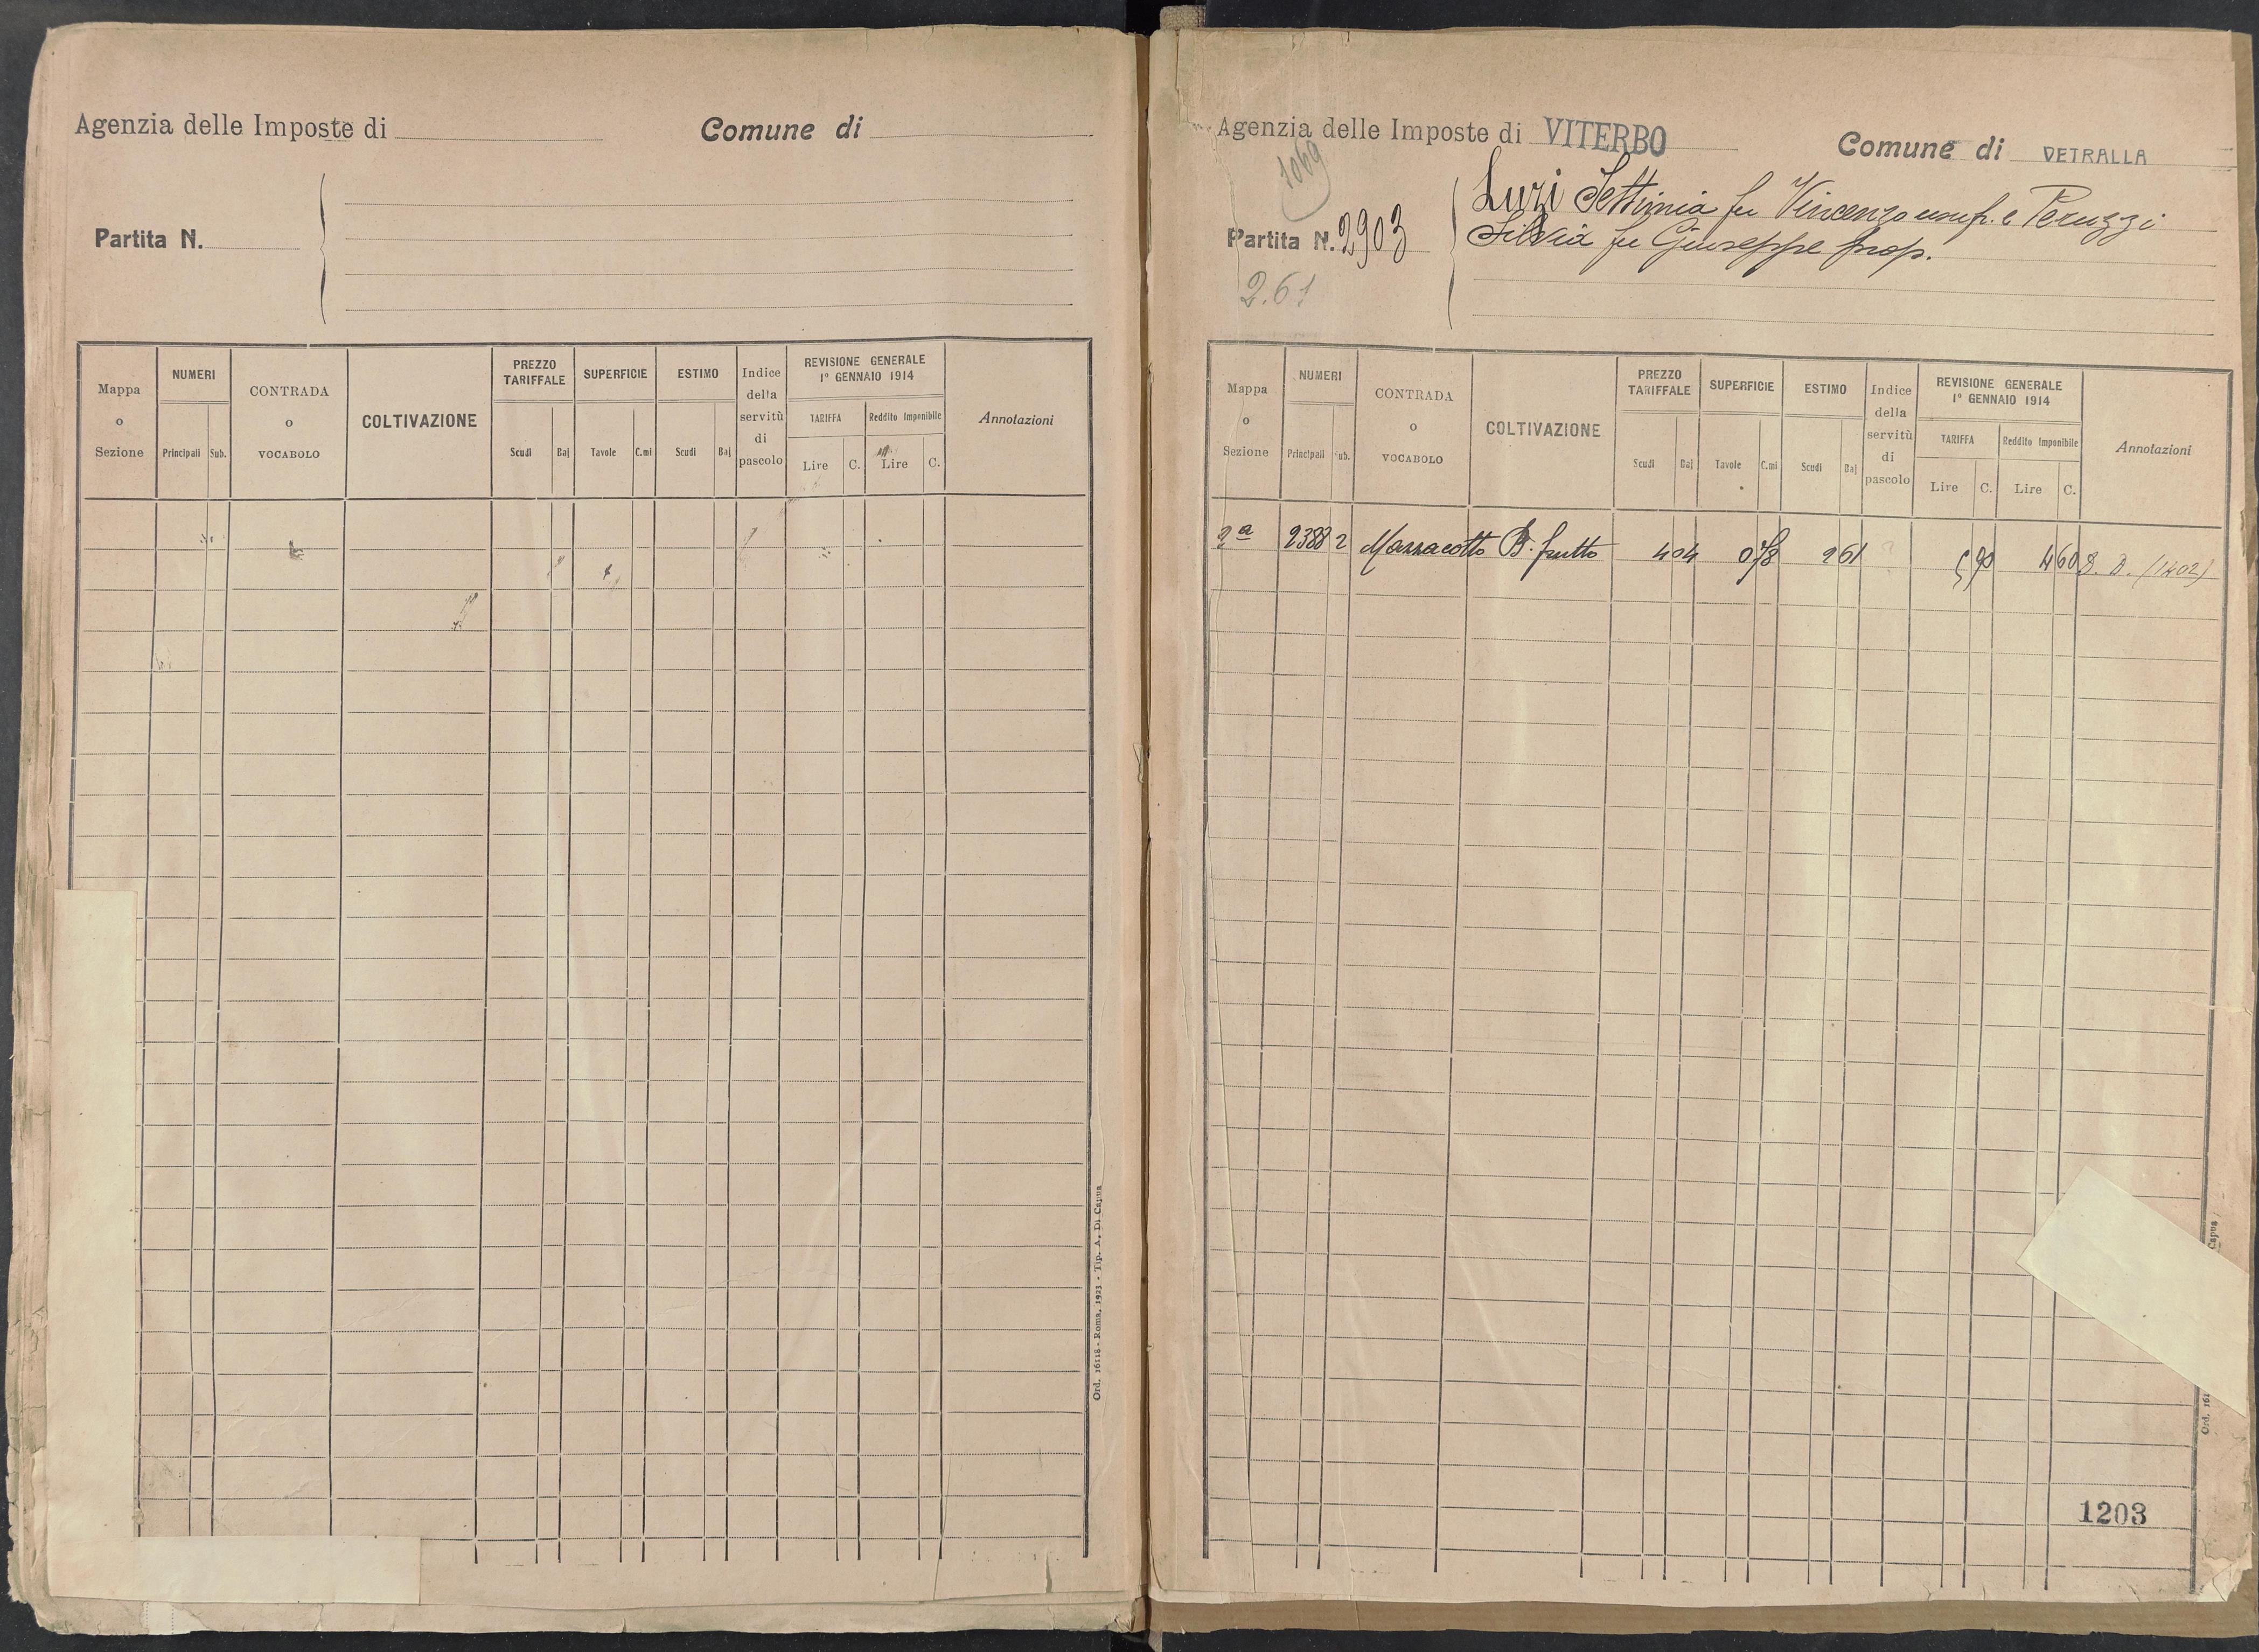 Agenzia delle Imposte di
Comune di
Partita N.
Mappa o Sezione
NUMERI
Principali Sub.
CONTRADA o VOCABOLO
COLTIVAZIONE
PREZZO TARIFFALE
Scudi Baj
SUPERFICIE
Tavole C.mi
ESTIMO
Scudi Baj
Indice della servitù di pascolo
REVISIONE GENERALE
1° GENNAIO 1914
TARIFFA
Lire C.
Reddito Imponibile
Lire C.
Annotazioni
Ord. 16118 - Roma, 1933 - Tip. A. Di Capua
Agenzia delle Imposte di VITERBO
Comune di VETRALLA
1069
Partita N. 2903
Luzi Settimia fu Vincenzo usuf. e Peruzzi
Silvia fu Giuseppe prop.
2.61
Mappa o Sezione
NUMERI
Principali Sub.
CONTRADA o VOCABOLO
COLTIVAZIONE
PREZZO TARIFFALE
Scudi Baj
SUPERFICIE
Tavole C.mi
ESTIMO
Scudi Baj
Indice della servitù di pascolo
REVISIONE GENERALE
1° GENNAIO 1914
TARIFFA
Lire C.
Reddito Imponibile
Lire C.
Annotazioni
2a 2388 2 Mazzacotto B. frutto 4 04 0 78 2 61 5 90 4 60 (1402)
Capua
Ord. 161
1203